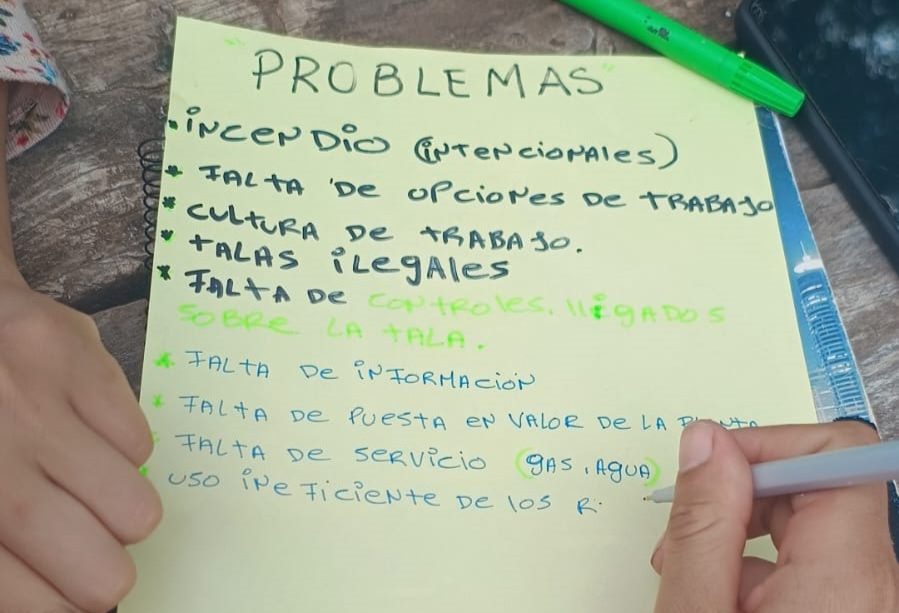 "PROBLEMAS"
• INCENDIO (INTENCIONALES)
* FALTA DE OPCIONES DE TRABAJO
* CULTURA DE TRABAJO.
* TALAS ILEGALES
* FALTA DE CONTROLES, 
SOBRE LA TALA.
* FALTA DE INFORMACIÓN
* FALTA DE PUESTA EN VALOR DE LA
* FALTA DE SERVICIO (GAS, AGUA)
* USO INEFICIENTE DE LOS R